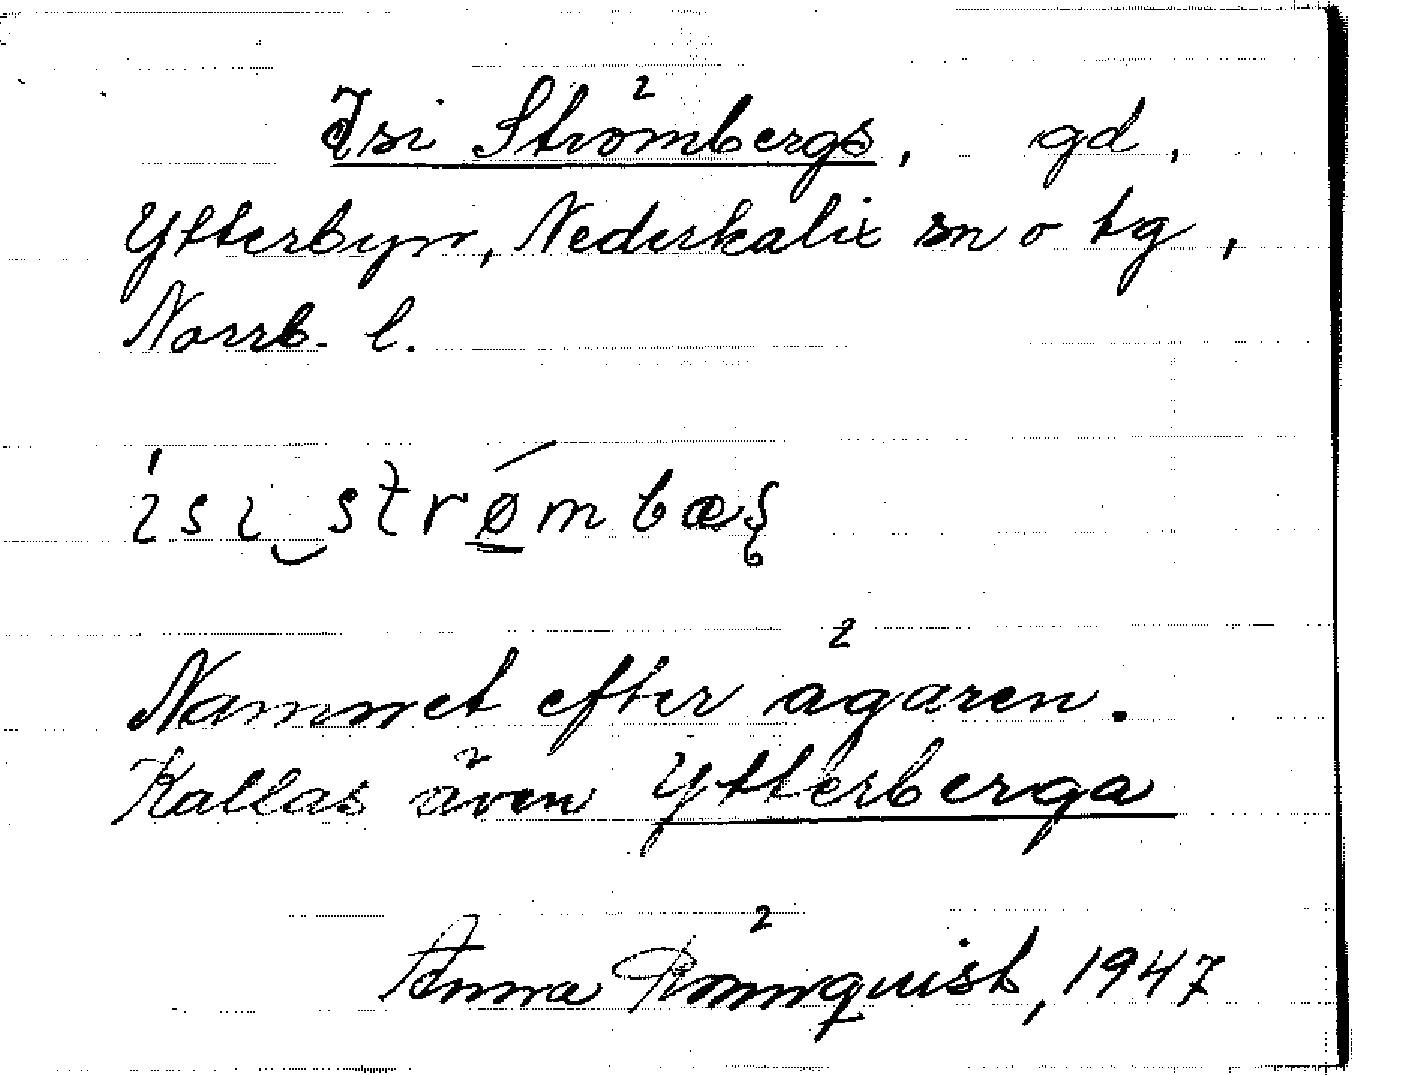 Isi Strömbergs, gd,
Ytterbyn, Nederkalix sn o tg,
Norrb. l.
ísi strømbæʂ
Namnet efter ägaren.
Kallas även Ytterberga
Anna Rönnquist, 1947